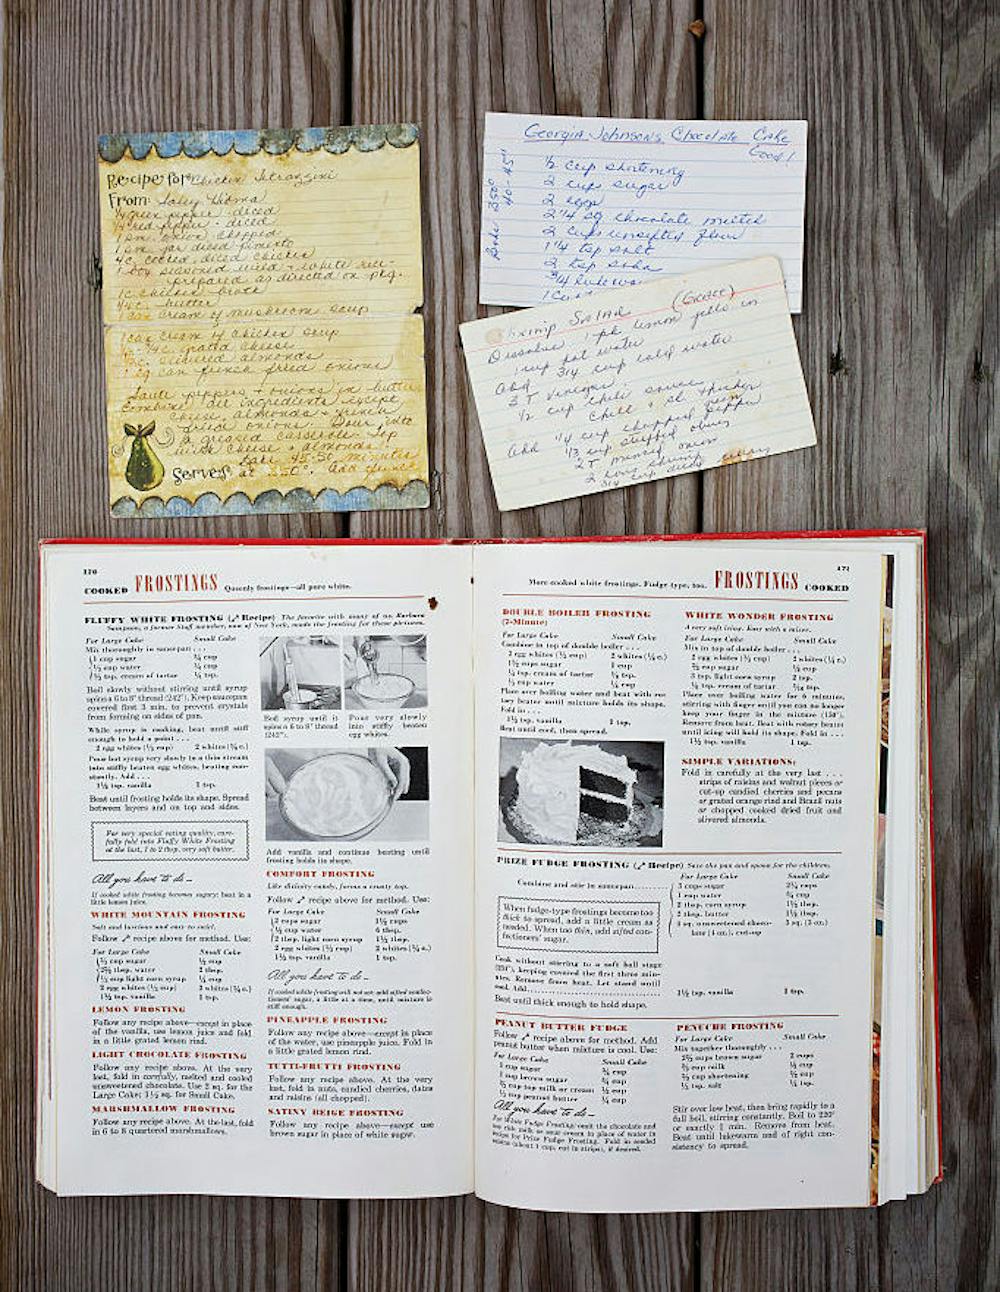 Recipe for: Chicken Tetrazzini
From:
1/4 green pepper - diced
1/4 red pepper - diced
1 sm. onion chopped
1 sm. jar diced pimento
4 c. cooked diced chicken
1 box seasoned wild + white rice -
prepared as directed on pkg.
1 c. chicken broth
butter
1 can cream of mushroom soup
1 can cream of chicken soup
grated cheese
slivered almonds
1 can french fried onions
Saute peppers + onions in butter
Combine all ingredients except
cheese, almonds + french
fried onions. Pour into
a greased casserole. Top
with cheese + almonds.
Bake 45-50 minutes
Serves at 350°. Add french
Georgia Johnson's Chocolate Cake
Good!
Bake 350° 40-45"
1/2 cup shortening
2 cups sugar
2 eggs
2 1/4 sq chocolate melted
2 cups unsifted flour
1 1/4 tsp salt
2 tsp soda
3/4
Shrimp Salad (Grace)
Dissolve 1 pk lemon jello in
1 cup hot water
Add 3/4 cup cold water
3 T vinegar
1/2 cup chili sauce
Chill
Add 1/4 cup chopped pepper
1/3 cup stuffed olives
2 T minced onion
3/4 cup diced celery
170
COOKED FROSTINGS Queenly frostings—all pure white.
FLUFFY WHITE FROSTING ( Recipe) The favorite with many of us. Barbara
Sampson, a former Staff member, now of New York, made the frosting for these pictures.
For Large Cake Small Cake
Mix thoroughly in saucepan . . .
1 cup sugar
water
cream of tartar
Boil slowly without stirring until syrup
spins a 6 to 8" thread (242°). Keep saucepan
covered first 3 min. to prevent crystals
from forming on sides of pan.
While syrup is cooking, beat until stiff
enough to hold a point . . .
2 egg whites (1/3 cup) 2 whites (1/4 c.)
Pour hot syrup very slowly in a thin stream
into stiffly beaten egg whites, beating con-
stantly. Add . . .
1 1/2 tsp. vanilla 1 tsp.
Beat until frosting holds its shape. Spread
between layers and on top and sides.
For very special eating quality, care-
fully fold into Fluffy White Frosting
at the last, 1 to 2 tbsp. very soft butter.
All you have to do—
If cooked white frosting becomes sugary: beat in a
little lemon juice.
WHITE MOUNTAIN FROSTING
Soft and luscious and easy to swirl.
Follow recipe above for method. Use:
For Large Cake Small Cake
1/2 cup sugar
2 1/2 tbsp. water 2 tbsp.
light corn syrup
2 egg whites (1/3 cup) 2 whites (1/4 c.)
1 1/2 tsp. vanilla 1 tsp.
LEMON FROSTING
Follow any recipe above—except in place
of the vanilla, use lemon juice and fold
in a little grated lemon rind.
LIGHT CHOCOLATE FROSTING
Follow any recipe above. At the very
last, fold in carefully, melted and cooled
unsweetened chocolate. Use 2 sq. for the
Large Cake; 1 1/2 sq. for Small Cake.
MARSHMALLOW FROSTING
Follow any recipe above. At the last, fold
in 6 to 8 quartered marshmallows.
Boil syrup until it
spins a 6 to 8" thread
(242°).
Pour very slowly
into stiffly beaten
egg whites.
Add vanilla and continue beating until
frosting holds its shape.
COMFORT FROSTING
Like divinity candy, forms a crusty top.
Follow recipe above for method. Use:
For Large Cake Small Cake
2 cups sugar 1 1/2 cups
1/2 cup water 6 tbsp.
2 tbsp. light corn syrup 1 1/2 tbsp.
2 egg whites (1/3 cup) 2 whites (1/4 c.)
1 1/2 tsp. vanilla 1 tsp.
All you have to do—
If cooked white frosting will not set: add sifted confec-
tioners' sugar, a little at a time, until mixture is
stiff enough.
PINEAPPLE FROSTING
Follow any recipe above—except in place
of the water, use pineapple juice. Fold in
a little grated lemon rind.
TUTTI-FRUTTI FROSTING
Follow any recipe above. At the very
last, fold in nuts, candied cherries, dates
and raisins (all chopped).
SATINY BEIGE FROSTING
Follow any recipe above—except use
brown sugar in place of white sugar.
171
More cooked white frostings. Fudge type, too. FROSTINGS COOKED
DOUBLE BOILER FROSTING
(7-Minute)
For Large Cake Small Cake
Combine in top of double boiler . . .
2 egg whites (1/3 cup) 2 whites (1/4 c.)
1 1/2 cups sugar 1 cup
1/4 tsp. cream of tartar
1/3 cup water
Place over boiling water and beat with ro-
tary beater until mixture holds its shape.
Fold in . . .
1 1/2 tsp. vanilla 1 tsp.
Beat until cool, then spread.
WHITE WONDER FROSTING
A very soft icing. Easy with a mixer.
For Large Cake Small Cake
Mix in top of double boiler . . .
2 egg whites (1/3 cup) 2 whites (1/4 c.)
cup sugar
3 tsp. light corn syrup 2 tsp.
1/4 tsp. cream of tartar
Place over boiling water for 6 minutes,
stirring with finger until you can no longer
keep your finger in the mixture (150°).
Remove from heat. Beat with rotary beater
until icing will hold its shape. Fold in . . .
1 1/2 tsp. vanilla 1 tsp.
SIMPLE VARIATIONS:
Fold in carefully at the very last . . .
strips of raisins and walnut pieces or
cut-up candied cherries and pecans
or grated orange rind and Brazil nuts
or chopped cooked dried fruit and
slivered almonds.
PRIZE FUDGE FROSTING ( Recipe) Save the pan and spoon for the children.
For Large Cake Small Cake
Combine and stir in saucepan
3 cups sugar 2 1/4 cups
cup water
2 tbsp. corn syrup 1 1/2 tbsp.
2 tbsp. butter 1 1/2 tbsp.
4 sq. unsweetened choco- 3 sq. (3 oz.)
late (4 oz.), cut-up
When fudge-type frostings become too
thick to spread, add a little cream as
needed. When too thin, add sifted con-
fectioners' sugar.
Cook without stirring to a soft ball stage
keeping covered the first three min-
utes. Remove from heat. Let stand until
cool. Add
1 1/2 tsp. vanilla 1 tsp.
Beat until thick enough to hold shape.
PEANUT BUTTER FUDGE
Follow recipe above for method. Add
peanut butter when mixture is cool. Use:
For Large Cake Small Cake
1 cup sugar
1 cup brown sugar
top milk or cream
cup peanut butter
All you have to do—
For White Fudge Frosting: omit the chocolate and
use rich milk or sour cream in place of water in
recipe for Prize Fudge Frosting. Fold in seeded
raisins (about 1 cup, cut in strips), if desired.
PENUCHE FROSTING
For Large Cake Small Cake
Mix together thoroughly . . .
cups brown sugar 2 cups
cup milk
cup shortening
tsp. salt
Stir over low heat, then bring rapidly to a
full boil, stirring constantly. Boil to 220°
or exactly 1 min. Remove from heat.
Beat until lukewarm and of right con-
sistency to spread.